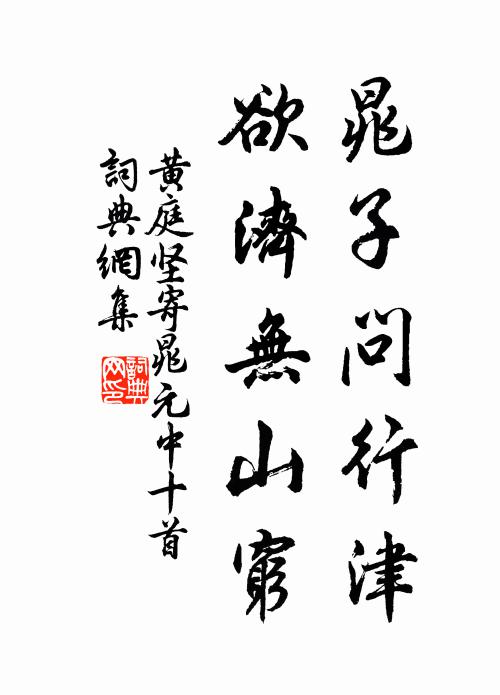 晁子問行津
欲濟無山窮
黃庭坚寄晁元中十首
詞典網集
詞典網印